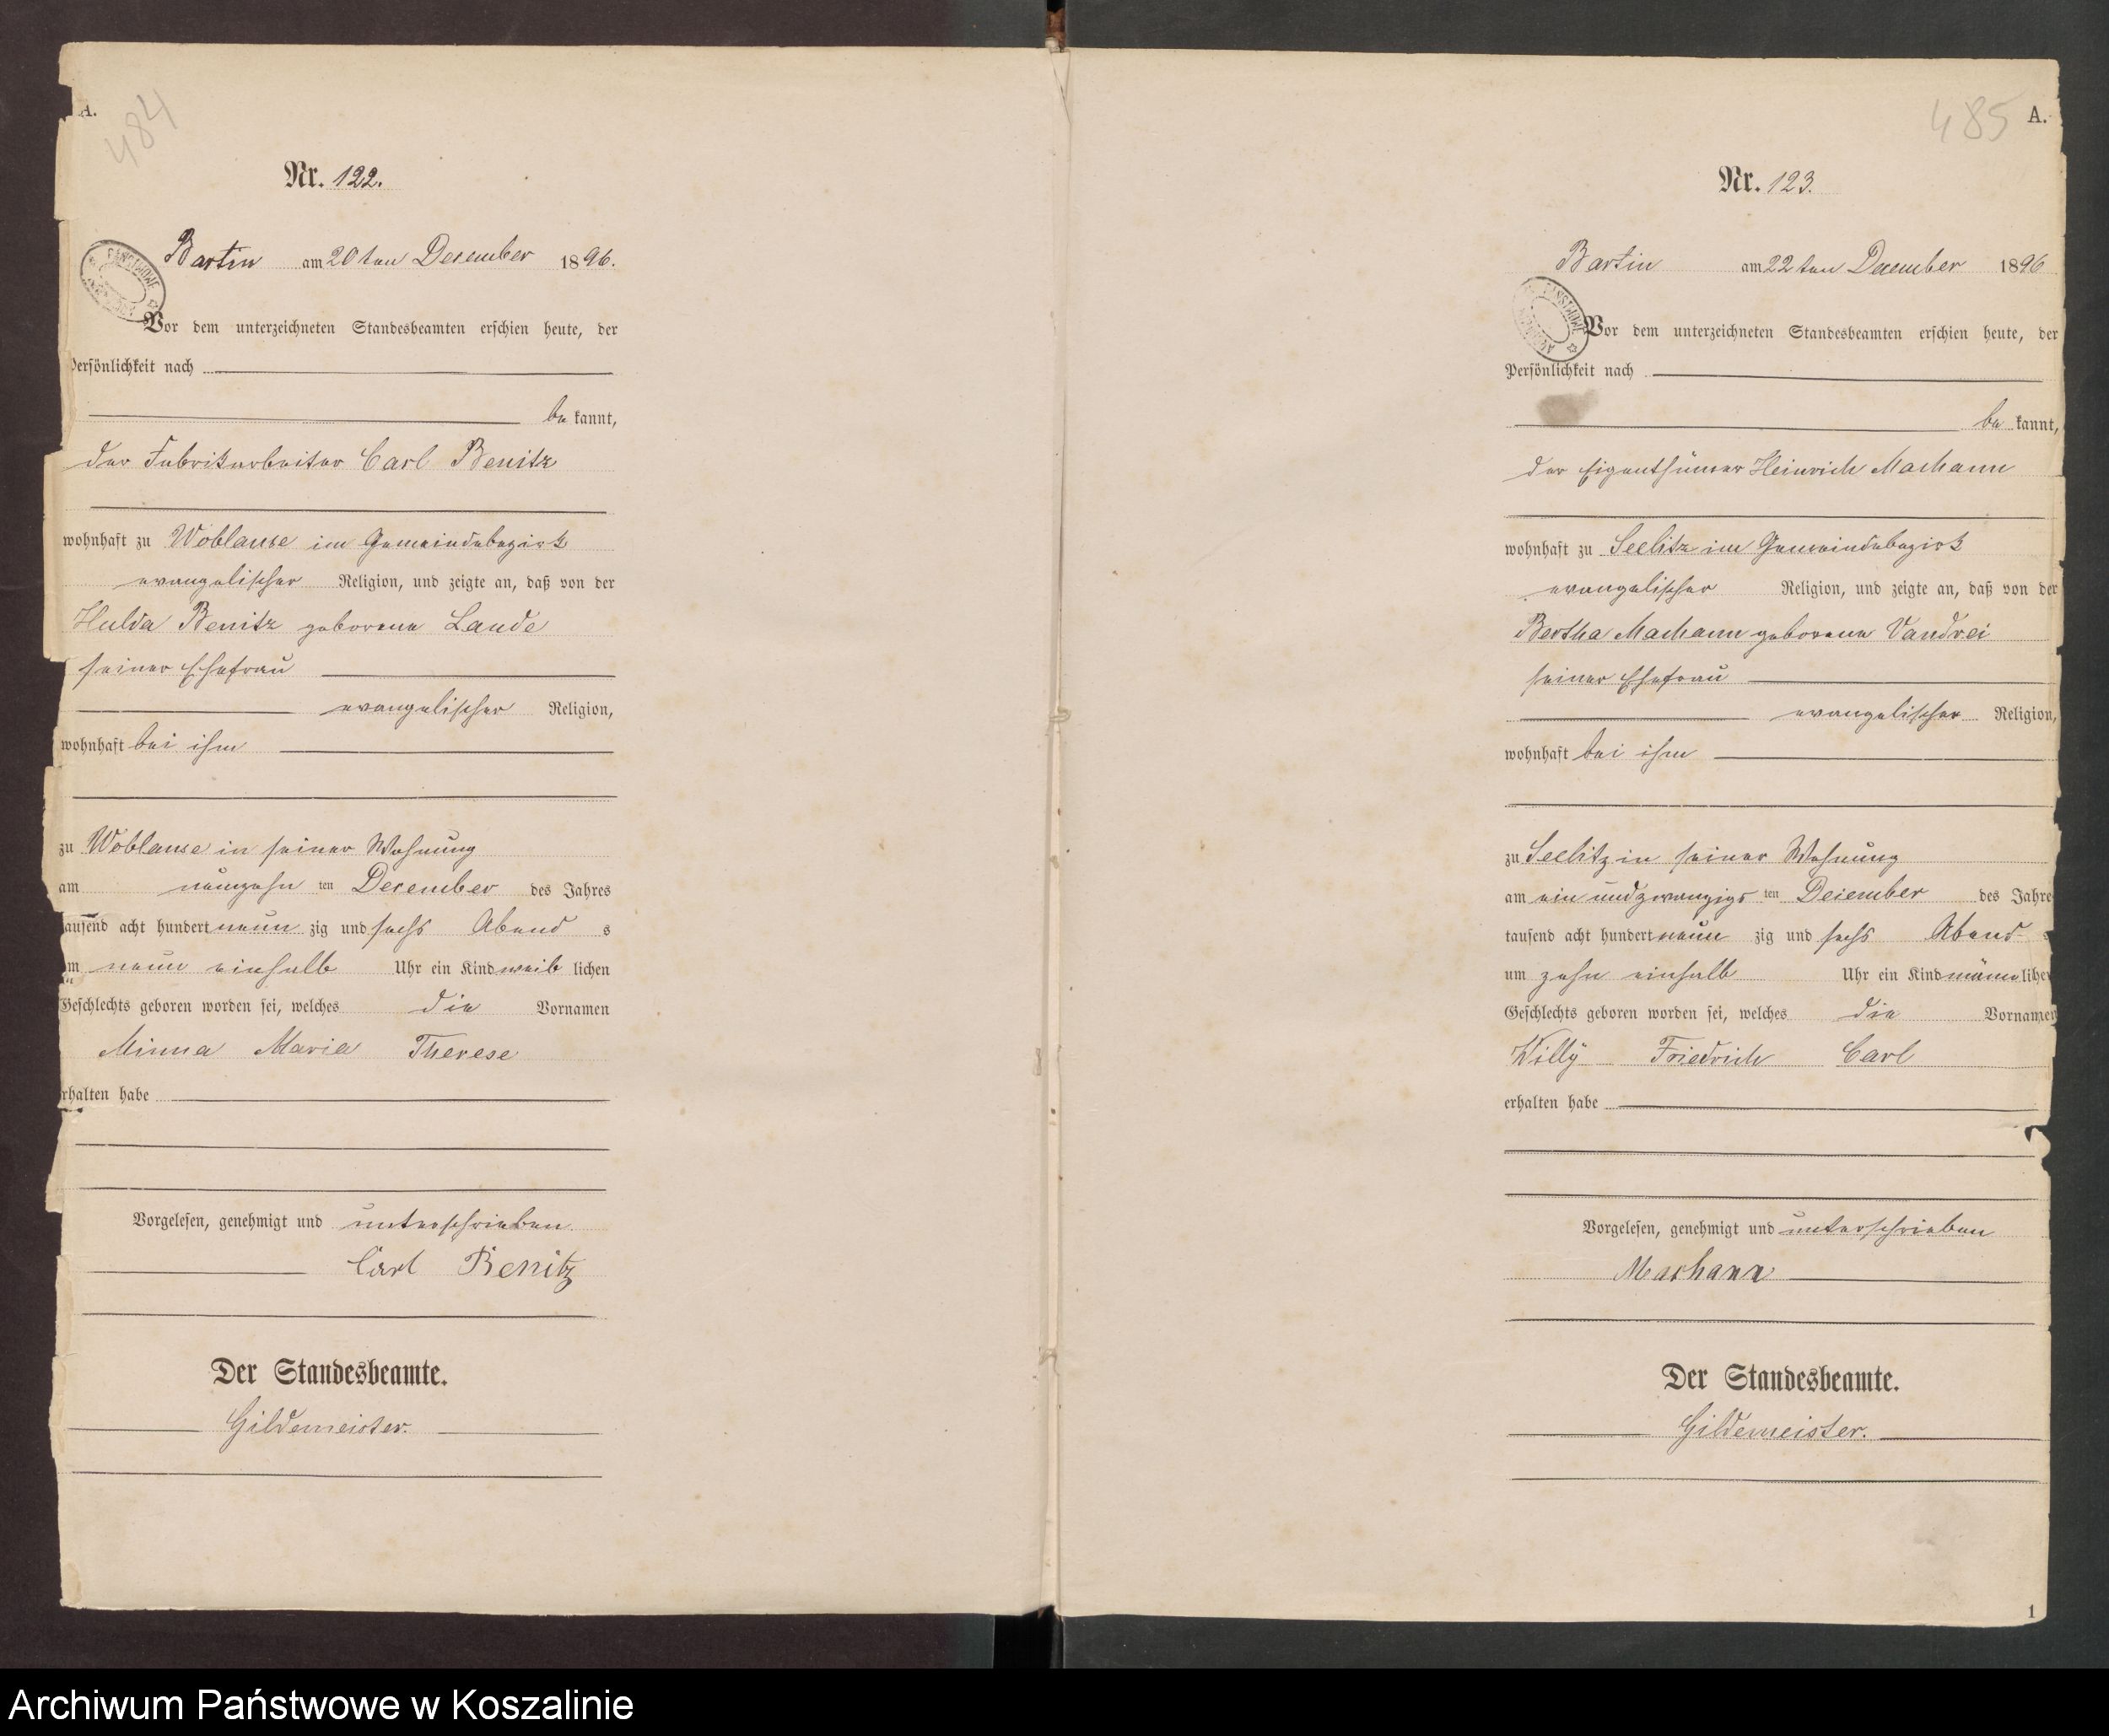 A.
484
Nr. 122.
Bartin am 20ten December 1896.
PAŃSTWOWE
Vor dem unterzeichneten Standesbeamten erschien heute, der
Persönlichkeit nach
be kannt,
der Fabrikarbeiter Carl Benitz
wohnhaft zu Woblanse im Gemeindebezirk
evangelischer Religion, und zeigte an, daß von der
Hulda Benitz geborene Lande
seiner Ehefrau
evangelischer Religion,
wohnhaft bei ihm
zu Woblanse in seiner Wohnung
am neunzehn ten December des Jahres
tausend acht hundert neun zig und sechs Abend s
um neun einhalb Uhr ein Kind weib lichen
Geschlechts geboren worden sei, welches die Vornamen
Minna Maria Therese
erhalten habe
Vorgelesen, genehmigt und unterschrieben.
Carl Benitz
Der Standesbeamte.
Gildemeister.
485 A.
Nr. 123.
Bartin am 22ten December 1896
PAŃSTWOWE
Vor dem unterzeichneten Standesbeamten erschien heute, der
Persönlichkeit nach
be kannt,
der Eigenthümer Heinrich Machann
wohnhaft zu Seelitz im Gemeindebezirk
evangelischer Religion, und zeigte an, daß von der
Bertha Machann geborene Vandrei
seiner Ehefrau
evangelischer Religion,
wohnhaft bei ihm
zu Seelitz in seiner Wohnung
am ein und zwanzigs ten December des Jahre
tausend acht hundert neun zig und sechs Abend s
um zehn einhalb Uhr ein Kind männ liche
Geschlechts geboren worden sei, welches die Vornamen
Willÿ Friedrich Carl
erhalten habe
Vorgelesen, genehmigt und unterschrieben
Machann
Der Standesbeamte.
Gildemeister.
1
Archiwum Państwowe w Koszalinie